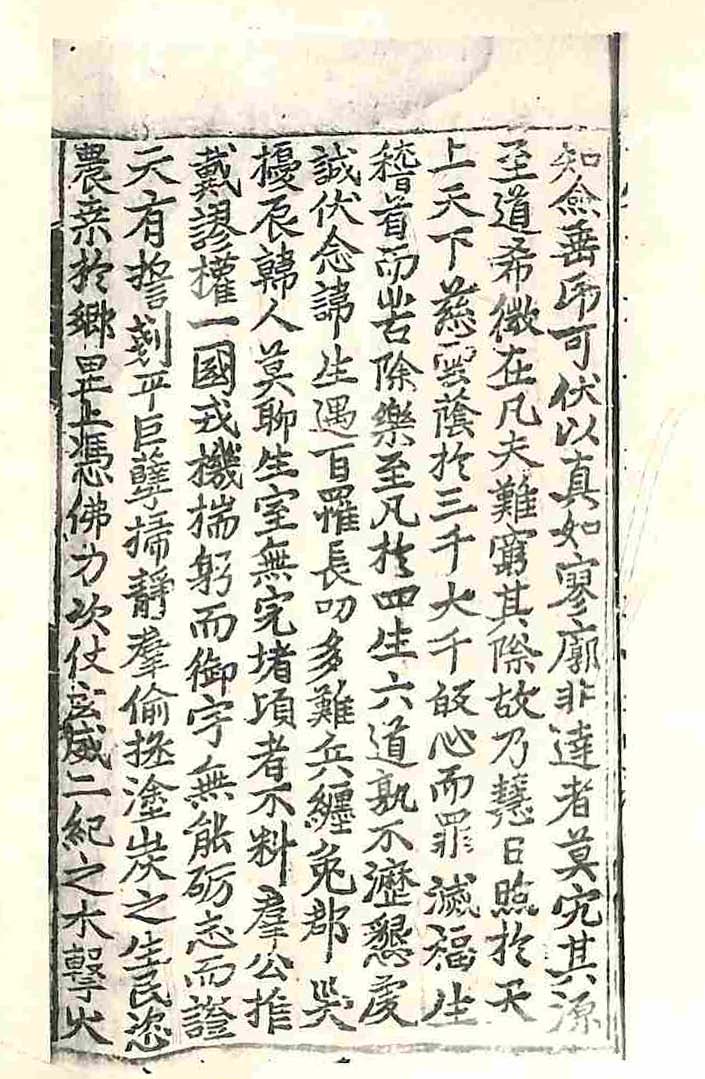 知僉垂印可伏以真如寥廓非達者莫究其源
至道希微在凡夫難窮其際故乃慧日照於天
上天下慈雲蔭於三千大千啟心而罪滅福生
稽首而苦除樂至凡於四生六道孰不瀝懇虔
誠伏念諱生遇百罹長叨多難兵纏兔郡災
擾辰韓人莫聊生室無完堵頃者不料羣公推
戴謬權一國戎機揣躬而御宇無能砺志而證
天有誓剗平巨孽掃靜羣偷拯塗炭之生民恣
農桒於鄉里上憑佛力次仗玄威二紀之水擊火